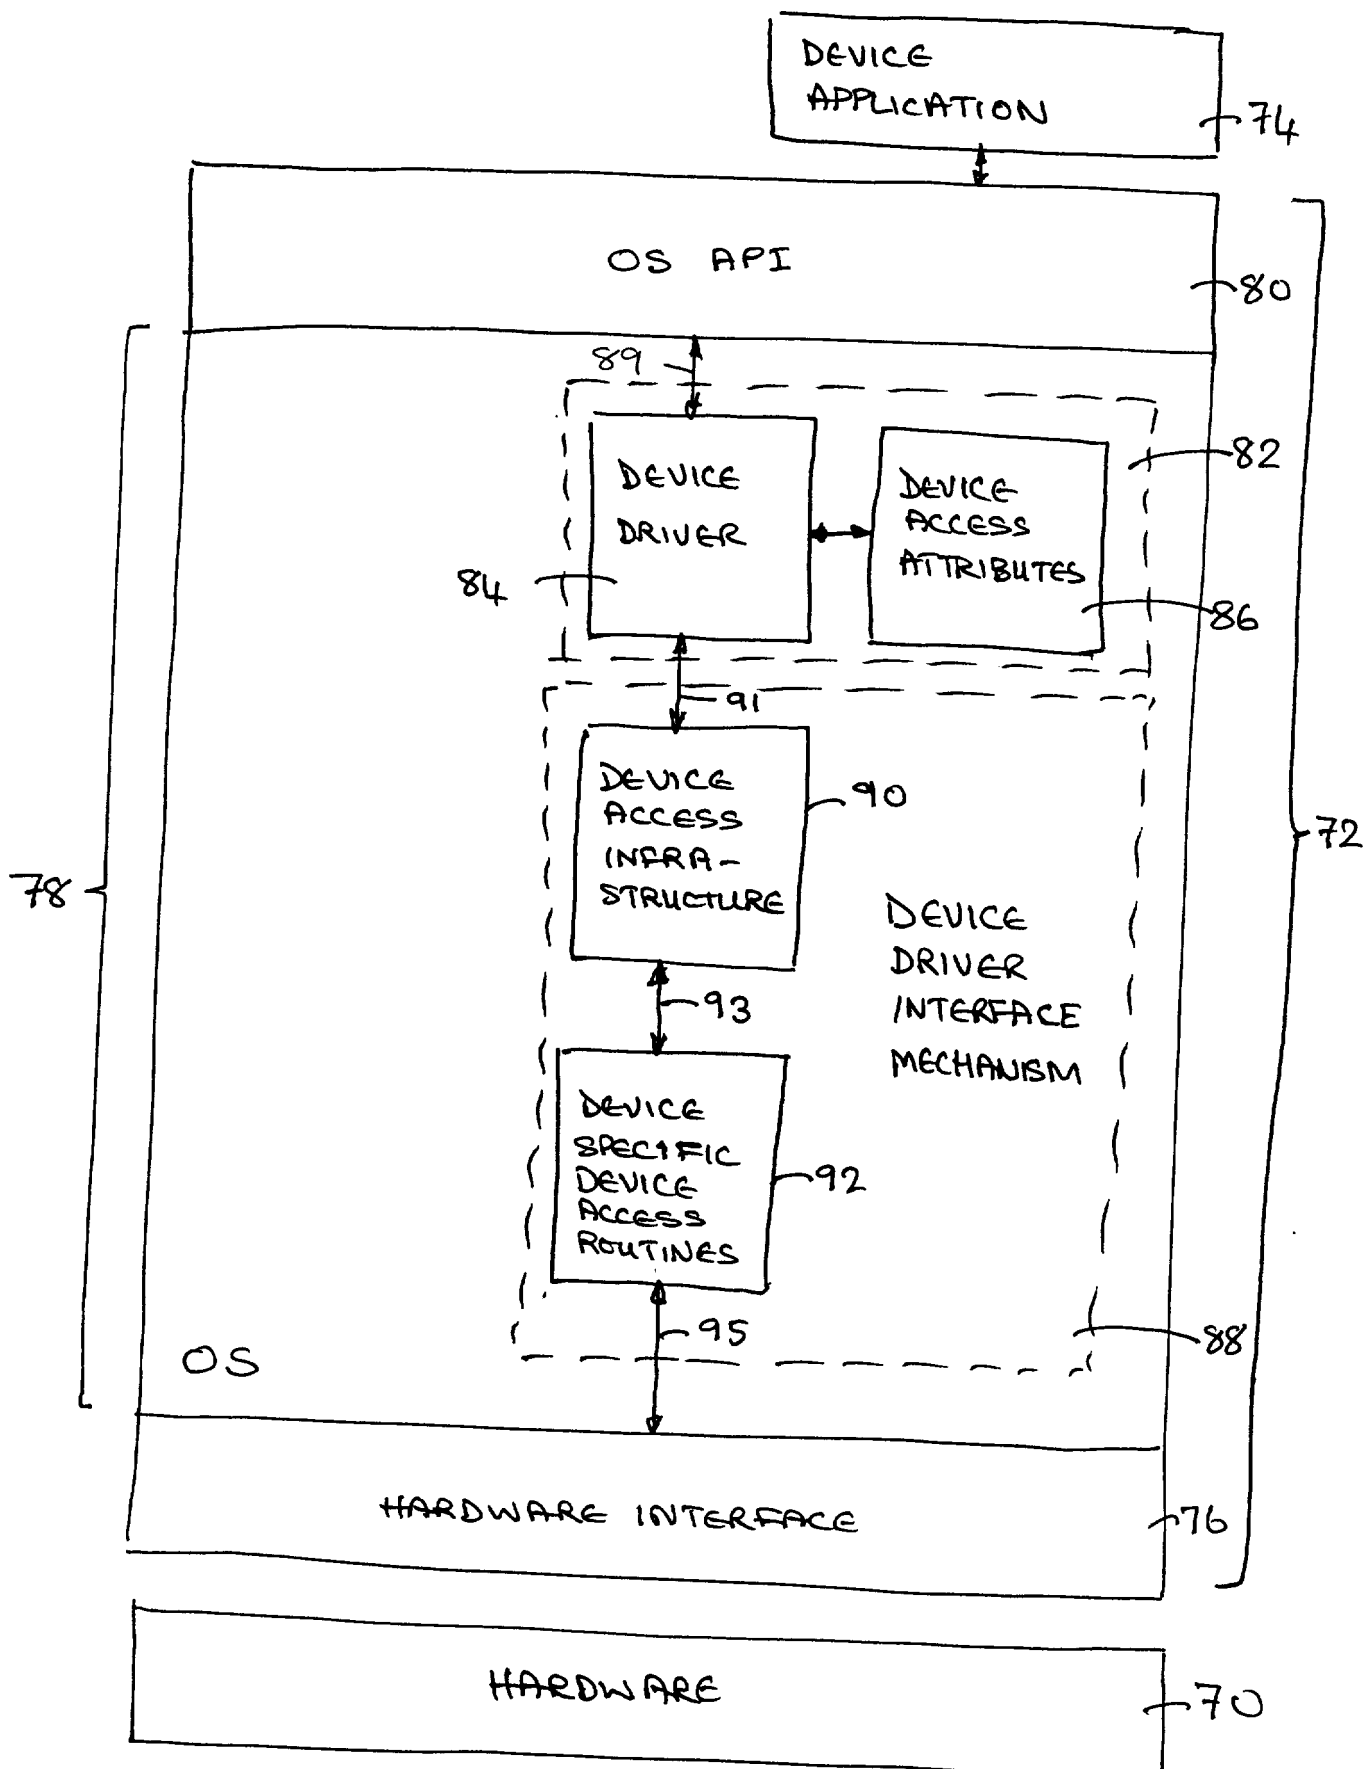 DEVICE
APPLICATION
74
OS API
80
89
82
DEVICE
DRIVER
84
DEVICE
ACCESS
ATTRIBUTES
86
91
DEVICE
ACCESS
INFRA-
STRUCTURE
90
78
72
93
DEVICE
DRIVER
INTERFACE
MECHANISM
DEVICE
SPECIFIC
DEVICE
ACCESS
ROUTINES
92
95
88
OS
HARDWARE INTERFACE
76
HARDWARE
70